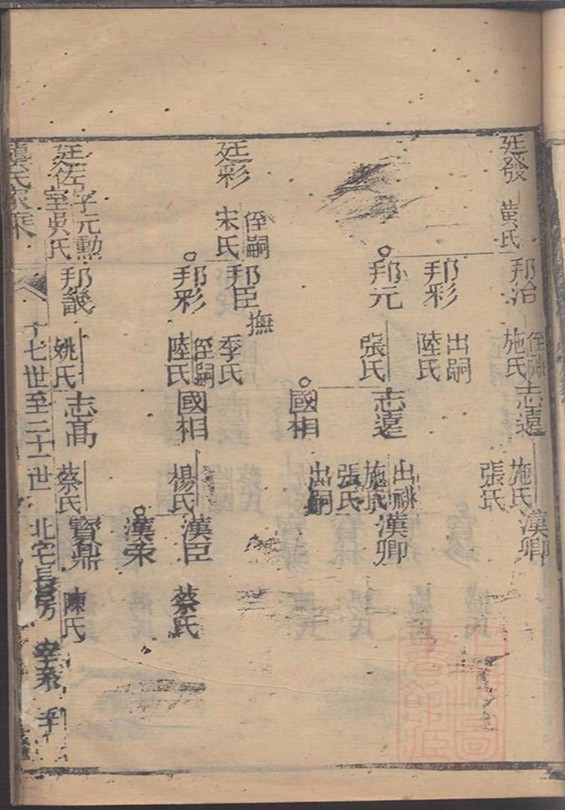 廷發 黃氏
邦治 施氏 侄祧
志遠 施氏 張氏
漢卿
邦彩 陸氏 出嗣
邦元 張氏
志遠 施氏 張氏 出祧
漢卿
國相 出嗣
廷彩 宋氏 侄嗣
邦臣 撫 季氏
邦彩 陸氏 侄嗣
國相 楊氏
漢臣 蔡氏
漢
廷佐 字元勳 室吳氏
邦畿 姚氏
志高 蔡氏
寶鼎 陳氏
氏家乘
十七世至二十一世
北宅長房